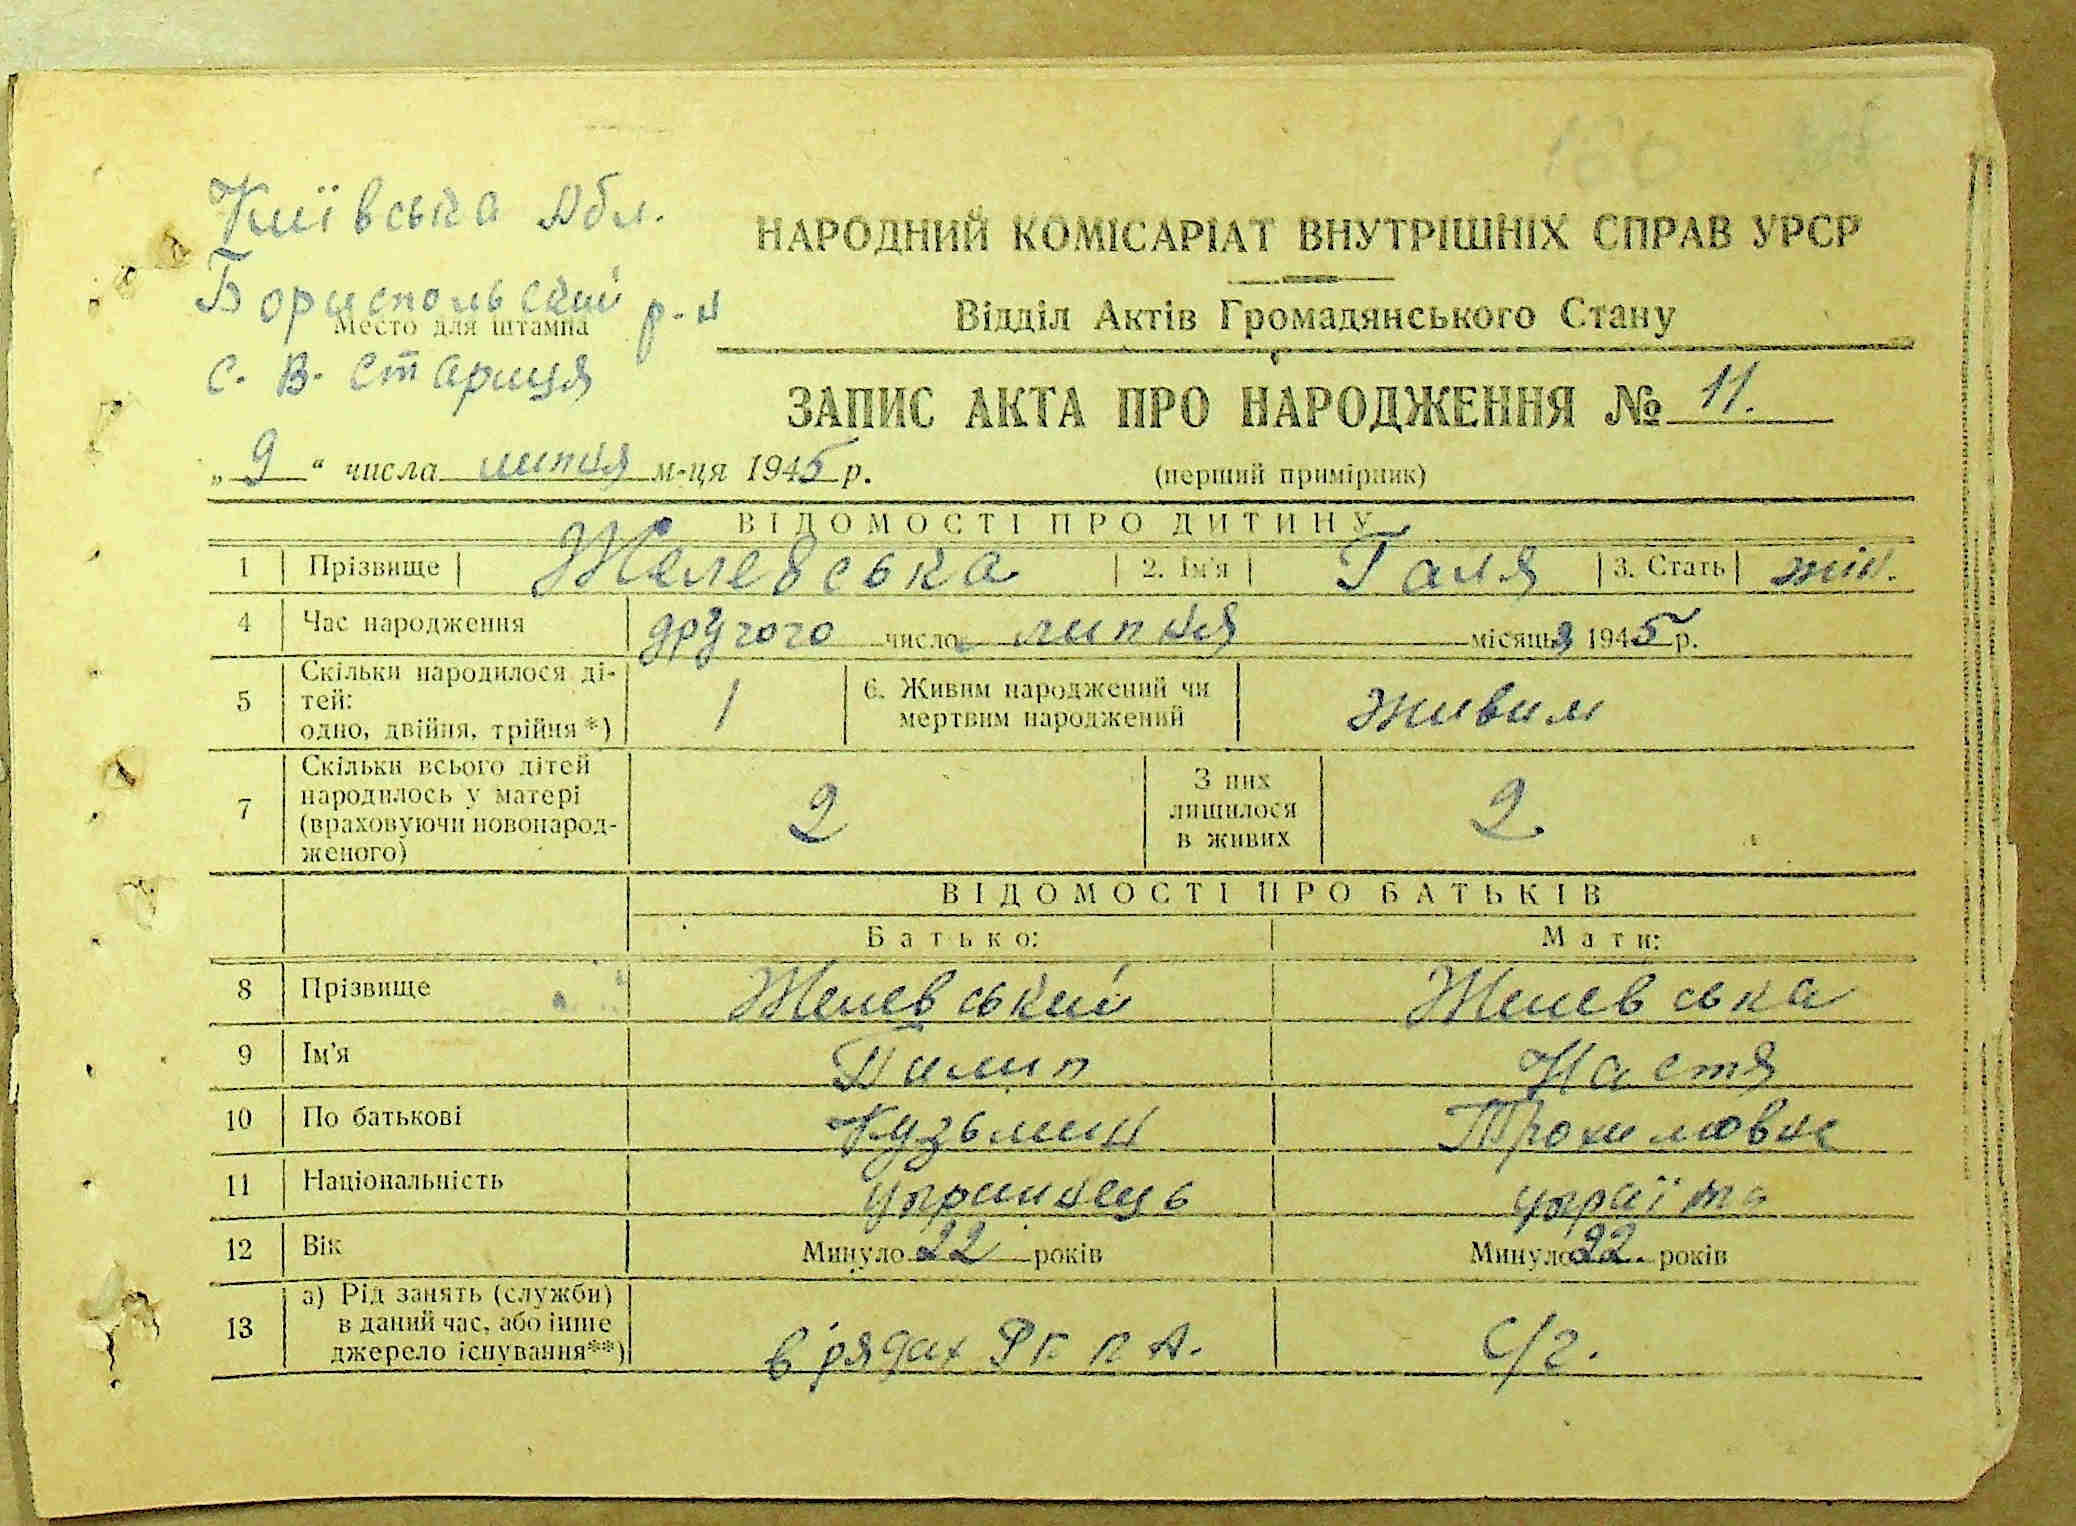 160
Київська Обл.
Бориспольський р-н
Место для штампа
с. В. Стариця
НАРОДНИЙ КОМІСАРІАТ ВНУТРІШНІХ СПРАВ УРСР
Відділ Актів Громадянського Стану
ЗАПИС АКТА ПРО НАРОДЖЕННЯ № 11.
„ 9 “ числа липня м-ця 1945 р. (перший примірник)
ВІДОМОСТІ ПРО ДИТИНУ
1 Прізвище Желевська 2. Ім'я Галя 3. Стать жін.
4 Час народження другого число липня місяця 1945 р.
5 Скільки народилося ді-
тей:
одно, двійня, трійня *) 1 6. Живим народжений чи
мертвим народжений живим
7 Скільки всього дітей
народилось у матері
(враховуючи новонарод-
женого) 2 З них
лишилося
в живих 2
ВІДОМОСТІ ПРО БАТЬКІВ
Батько: Мати:
8 Прізвище Желевський Желевська
9 Ім'я Пилип Настя
10 По батькові Кузьмин Трохимовна
11 Національність
12 Вік Минуло 22 років Минуло 22. років
13 а) Рід занять (служби)
в даний час, або інше
джерело існування**) в рядах РККА. С/г.